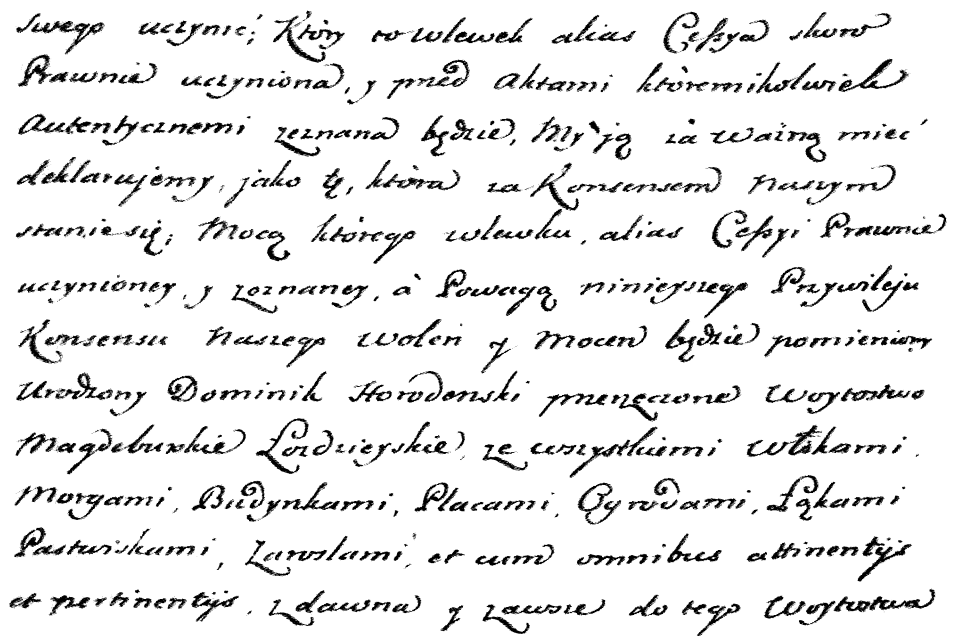 swego uczynić; Który to wlewek alias Ceßya skoro
Prawnie uczyniona, y przed Aktami któremikolwiek
Autentycznemi zeznana będzie, My ją za ważną mieć
deklarujemy, jako tę, która za Konsensem Naszym
stanie się; Mocą którego wlewku, alias Ceßyi Prawnie
uczynioney, y zeznaney, à Powagą ninieyszego Przywileju
Konsensu Naszego Wolen y Mocen będzie pomieniony
Urodzony Dominik Horodenski przerzeczone Woytostwo
Magdeburskie Łozdzieyskie, ze wszystkiemi Włókami,
Morgami, Budynkami, Placami, Ogrodami, Łąkami
Pastwiskami, Zaroslami, et cum omnibus attinentijs
et pertinentijs, z dawna y zawsze do tego Woytostwa